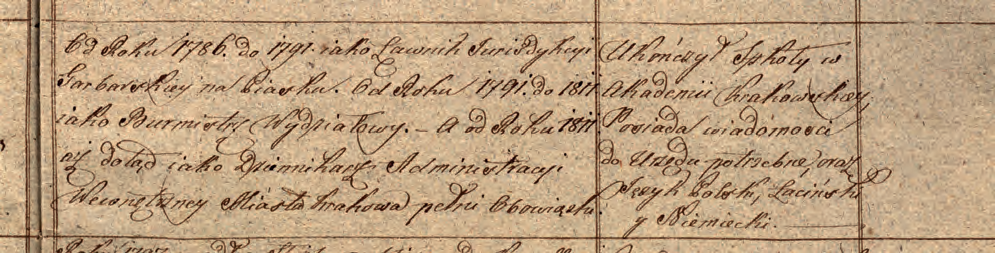 Od Roku 1786. do 1791. iako Ławnik Jurisdykcyi
Garbarskiey na Piasku. Od Roku 1791. do 1811
iako Burmistrz Wydziałowy. – A od Roku 1811
aż dotąd iako Dziennikarz Administracyi
Wewnętrzney Miasta Krakowa pełni Obowiązki.
Ukończył Szkoły w
Akademii Krakowskiey,
Posiada wiadomości
do Urzędu potrzebne, oraz
Język Polski, Łaciński
y Niemiecki.